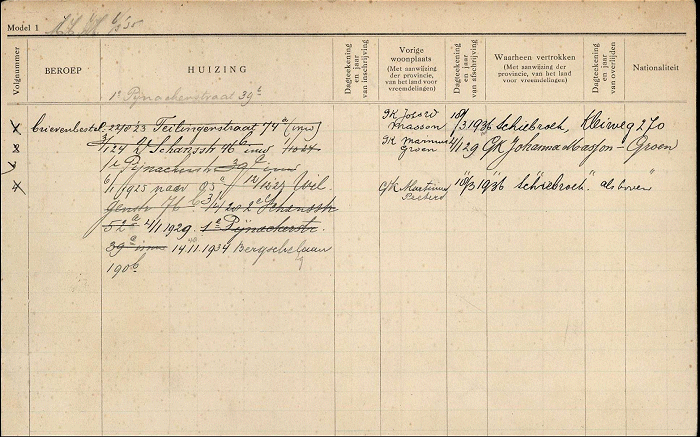 Model 1
Volgnummer
BEROEP
HUIZING
Dagteekening en jaar van inschrijving
Vorige woonplaats
(Met aanwijzing der provincie, van het land voor vreemdelingen)
Dagteekening en jaar van afschrijving
Waarheen vertrokken
(Met aanwijzing der provincie, van het land voor vreemdelingen)
Dagteekening en jaar van overlijden
Nationaliteit
1e Pijnackerstraat 39b
brievenbestel. 22/10 23 Teilingerstraat 74a (inw)
1/24 2e Schansstr 76 inw
1e Pijnackerstr 39 inw
1/1925 naar 95a 12/1227
76 b 2e Schansstr
52a 2/1 1929. 1e Pijnackerstr.
39a inw 14.11.1934 Bergschelaan
190b
GK
Masson
3/1936 Schiebroek, Kleiweg 270
GK
Groen
1/29 GK Johanna Masson-Groen
GK Martinus
3/1936 Schiebroek "als boven"